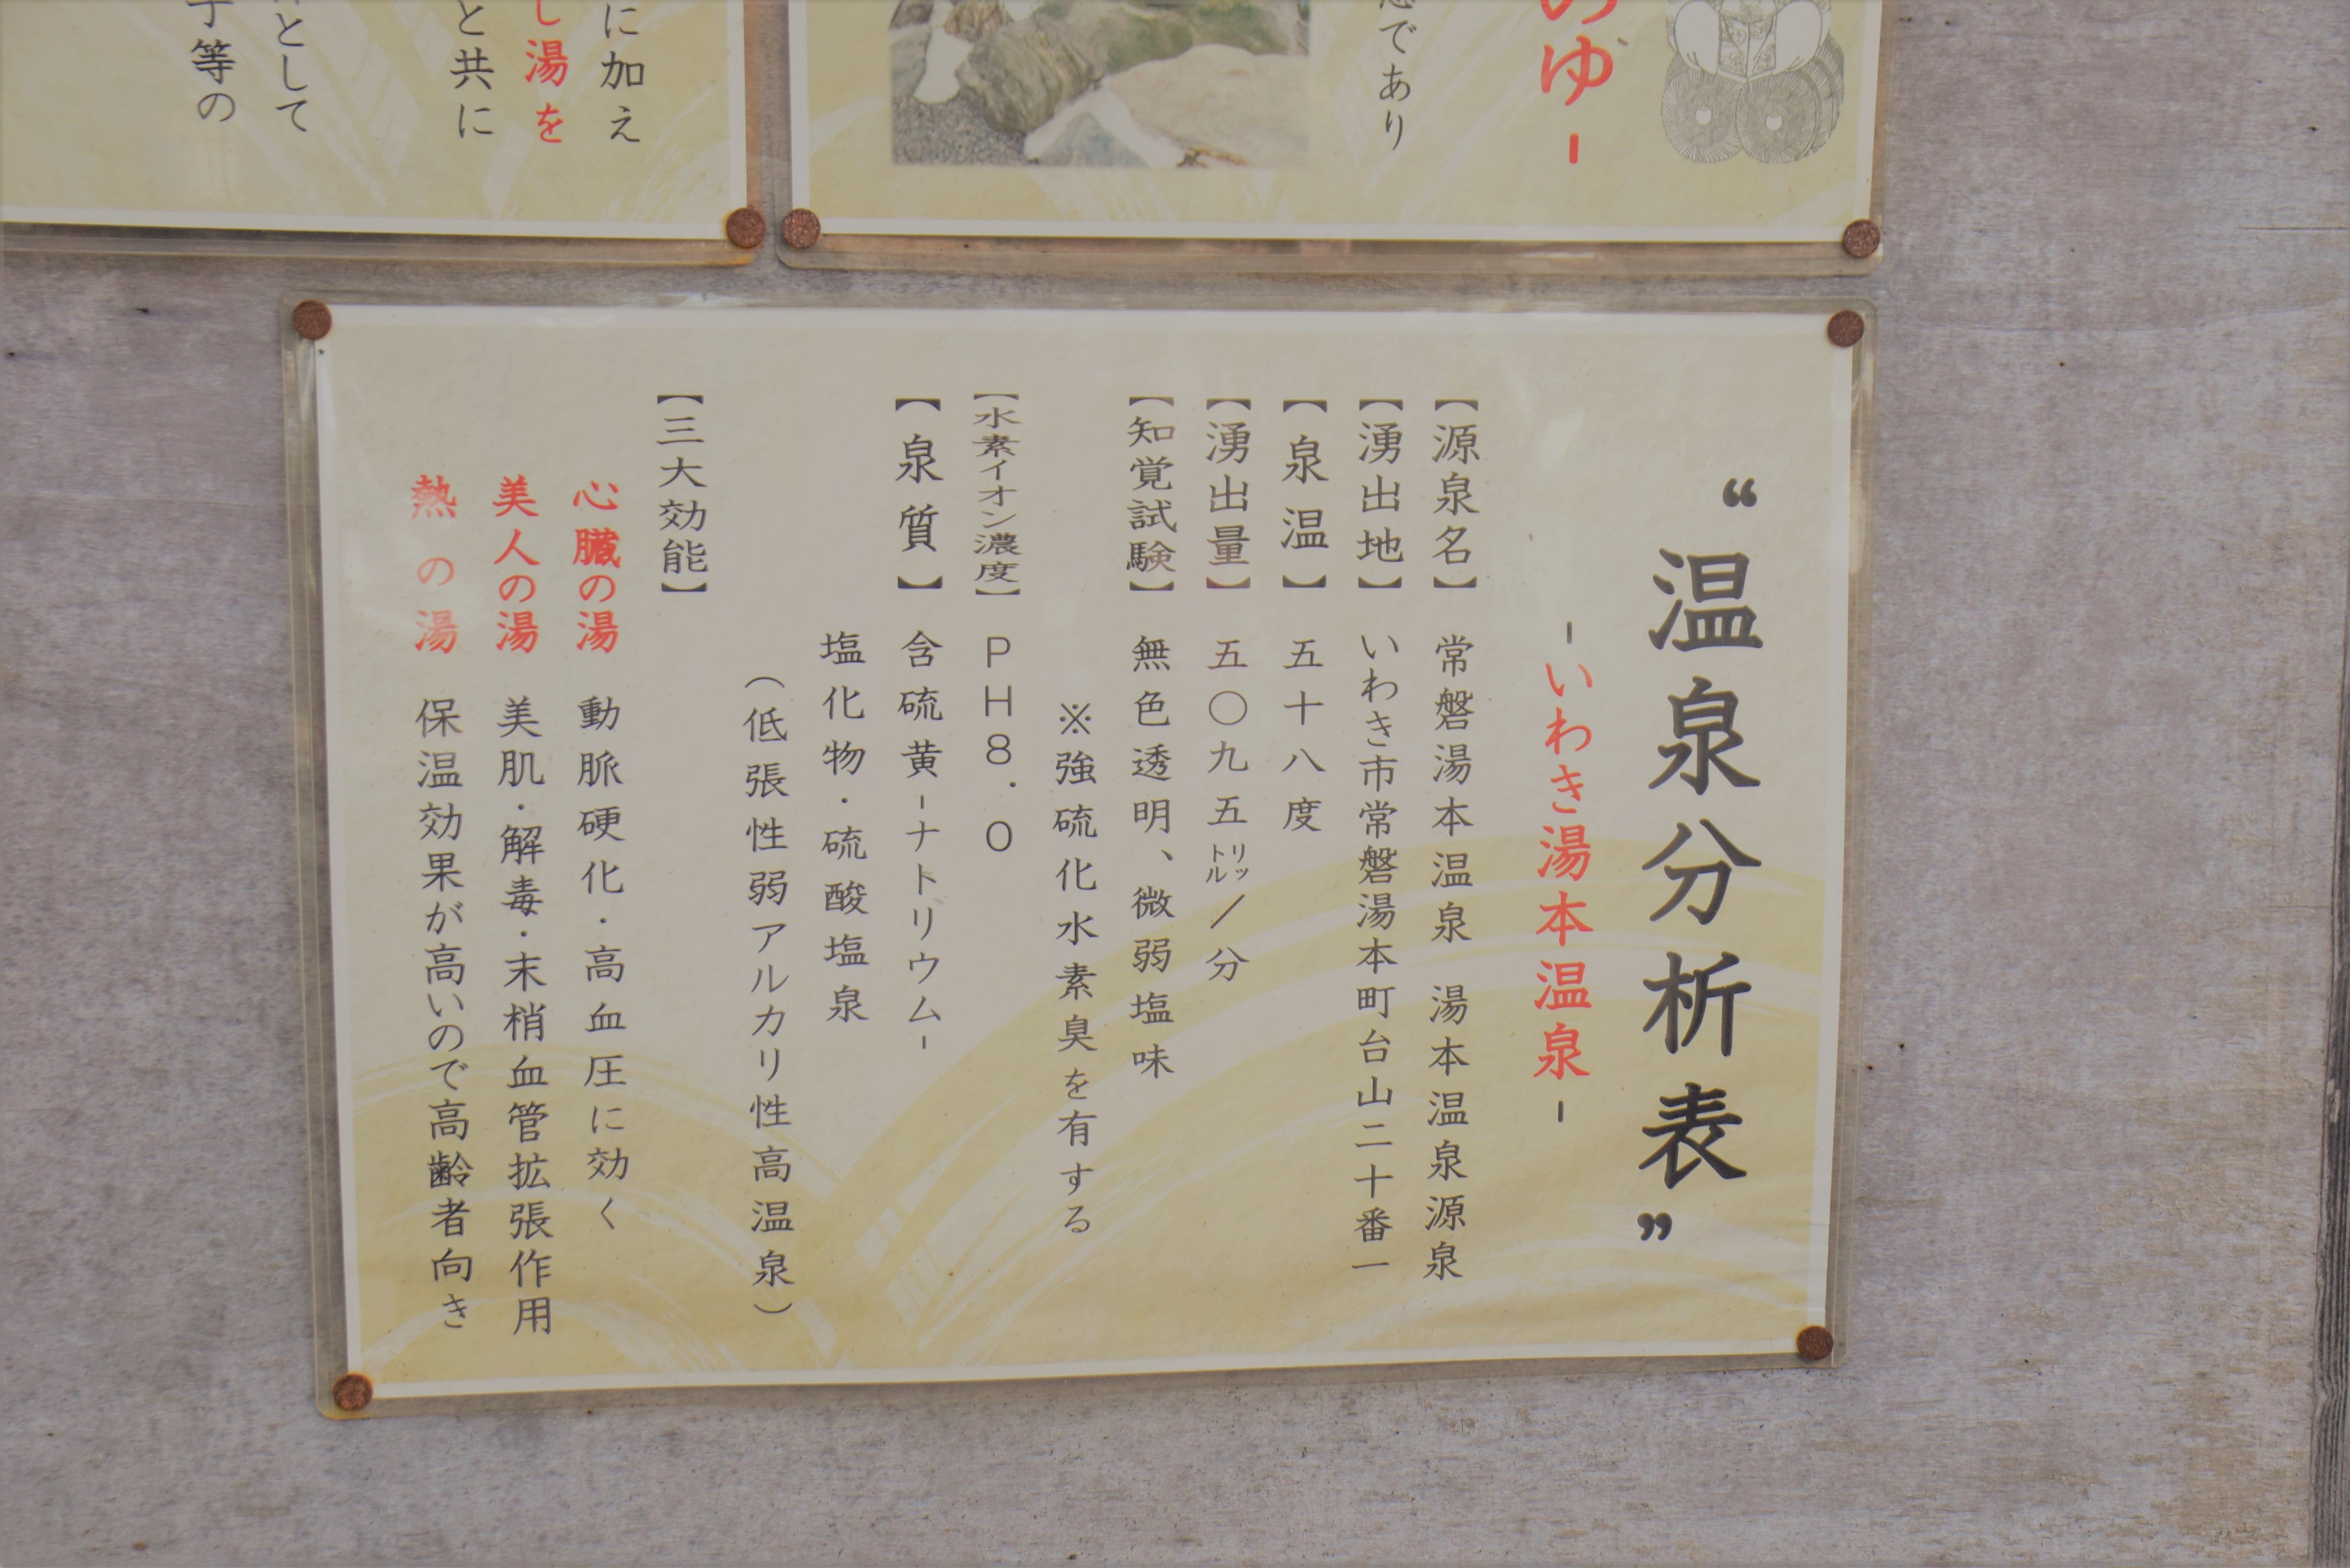 のゆ-
であり
に加え
し湯を
と共に
として
等の
“温泉分析表”
-いわき湯本温泉-
【源泉名】 常磐湯本温泉 湯本温泉源泉
【湧出地】 いわき市常磐湯本町台山二十番一
【泉温】 五十八度
【湧出量】 五〇九五リットル/分
【知覚試験】 無色透明、微弱塩味
※強硫化水素臭を有する
【水素イオン濃度】 PH8.0
【泉質】 含硫黄-ナトリウム-
塩化物・硫酸塩泉
(低張性弱アルカリ性高温泉)
【三大効能】
心臓の湯 動脈硬化・高血圧に効く
美人の湯 美肌・解毒・末梢血管拡張作用
熱の湯 保温効果が高いので高齢者向き